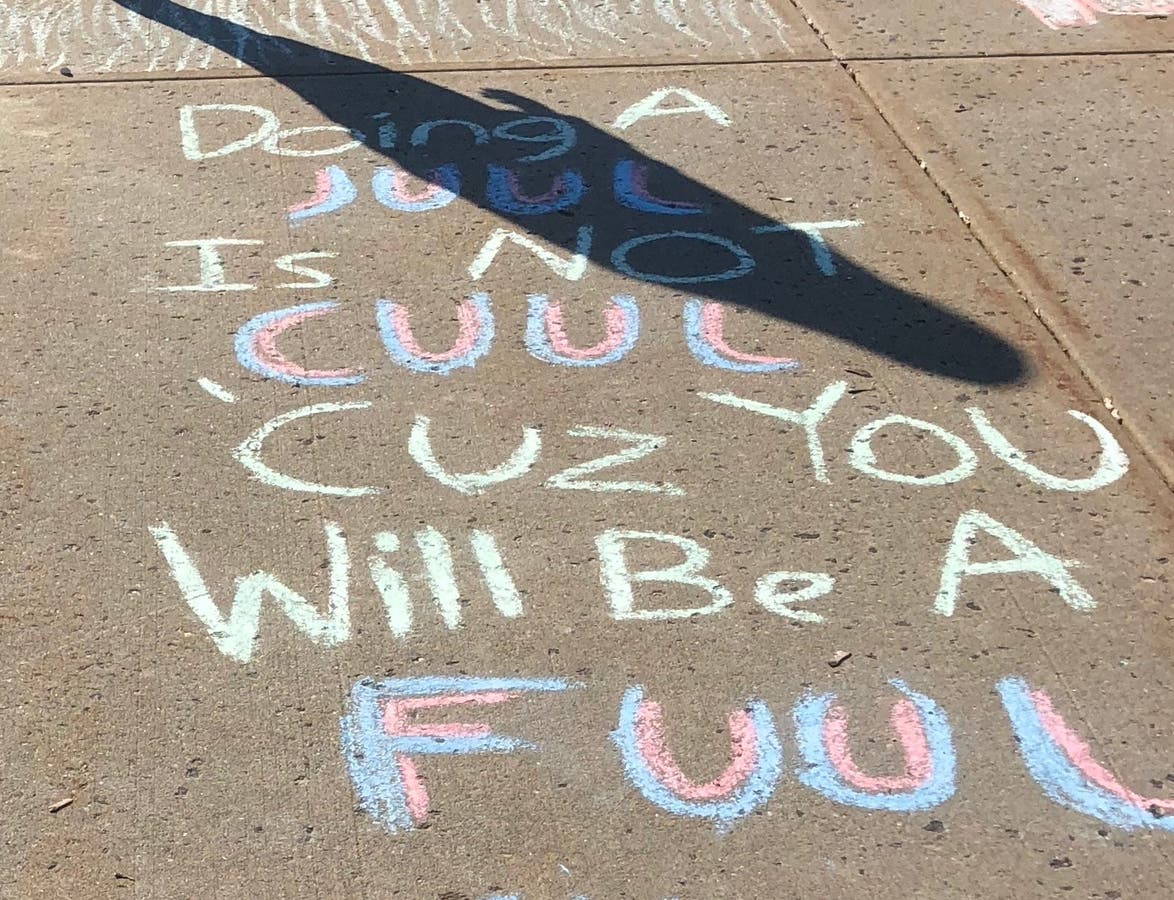 Doing A
JUUL
Is NOT
CUUL
'CUZ YOU
Will Be A
FUUL